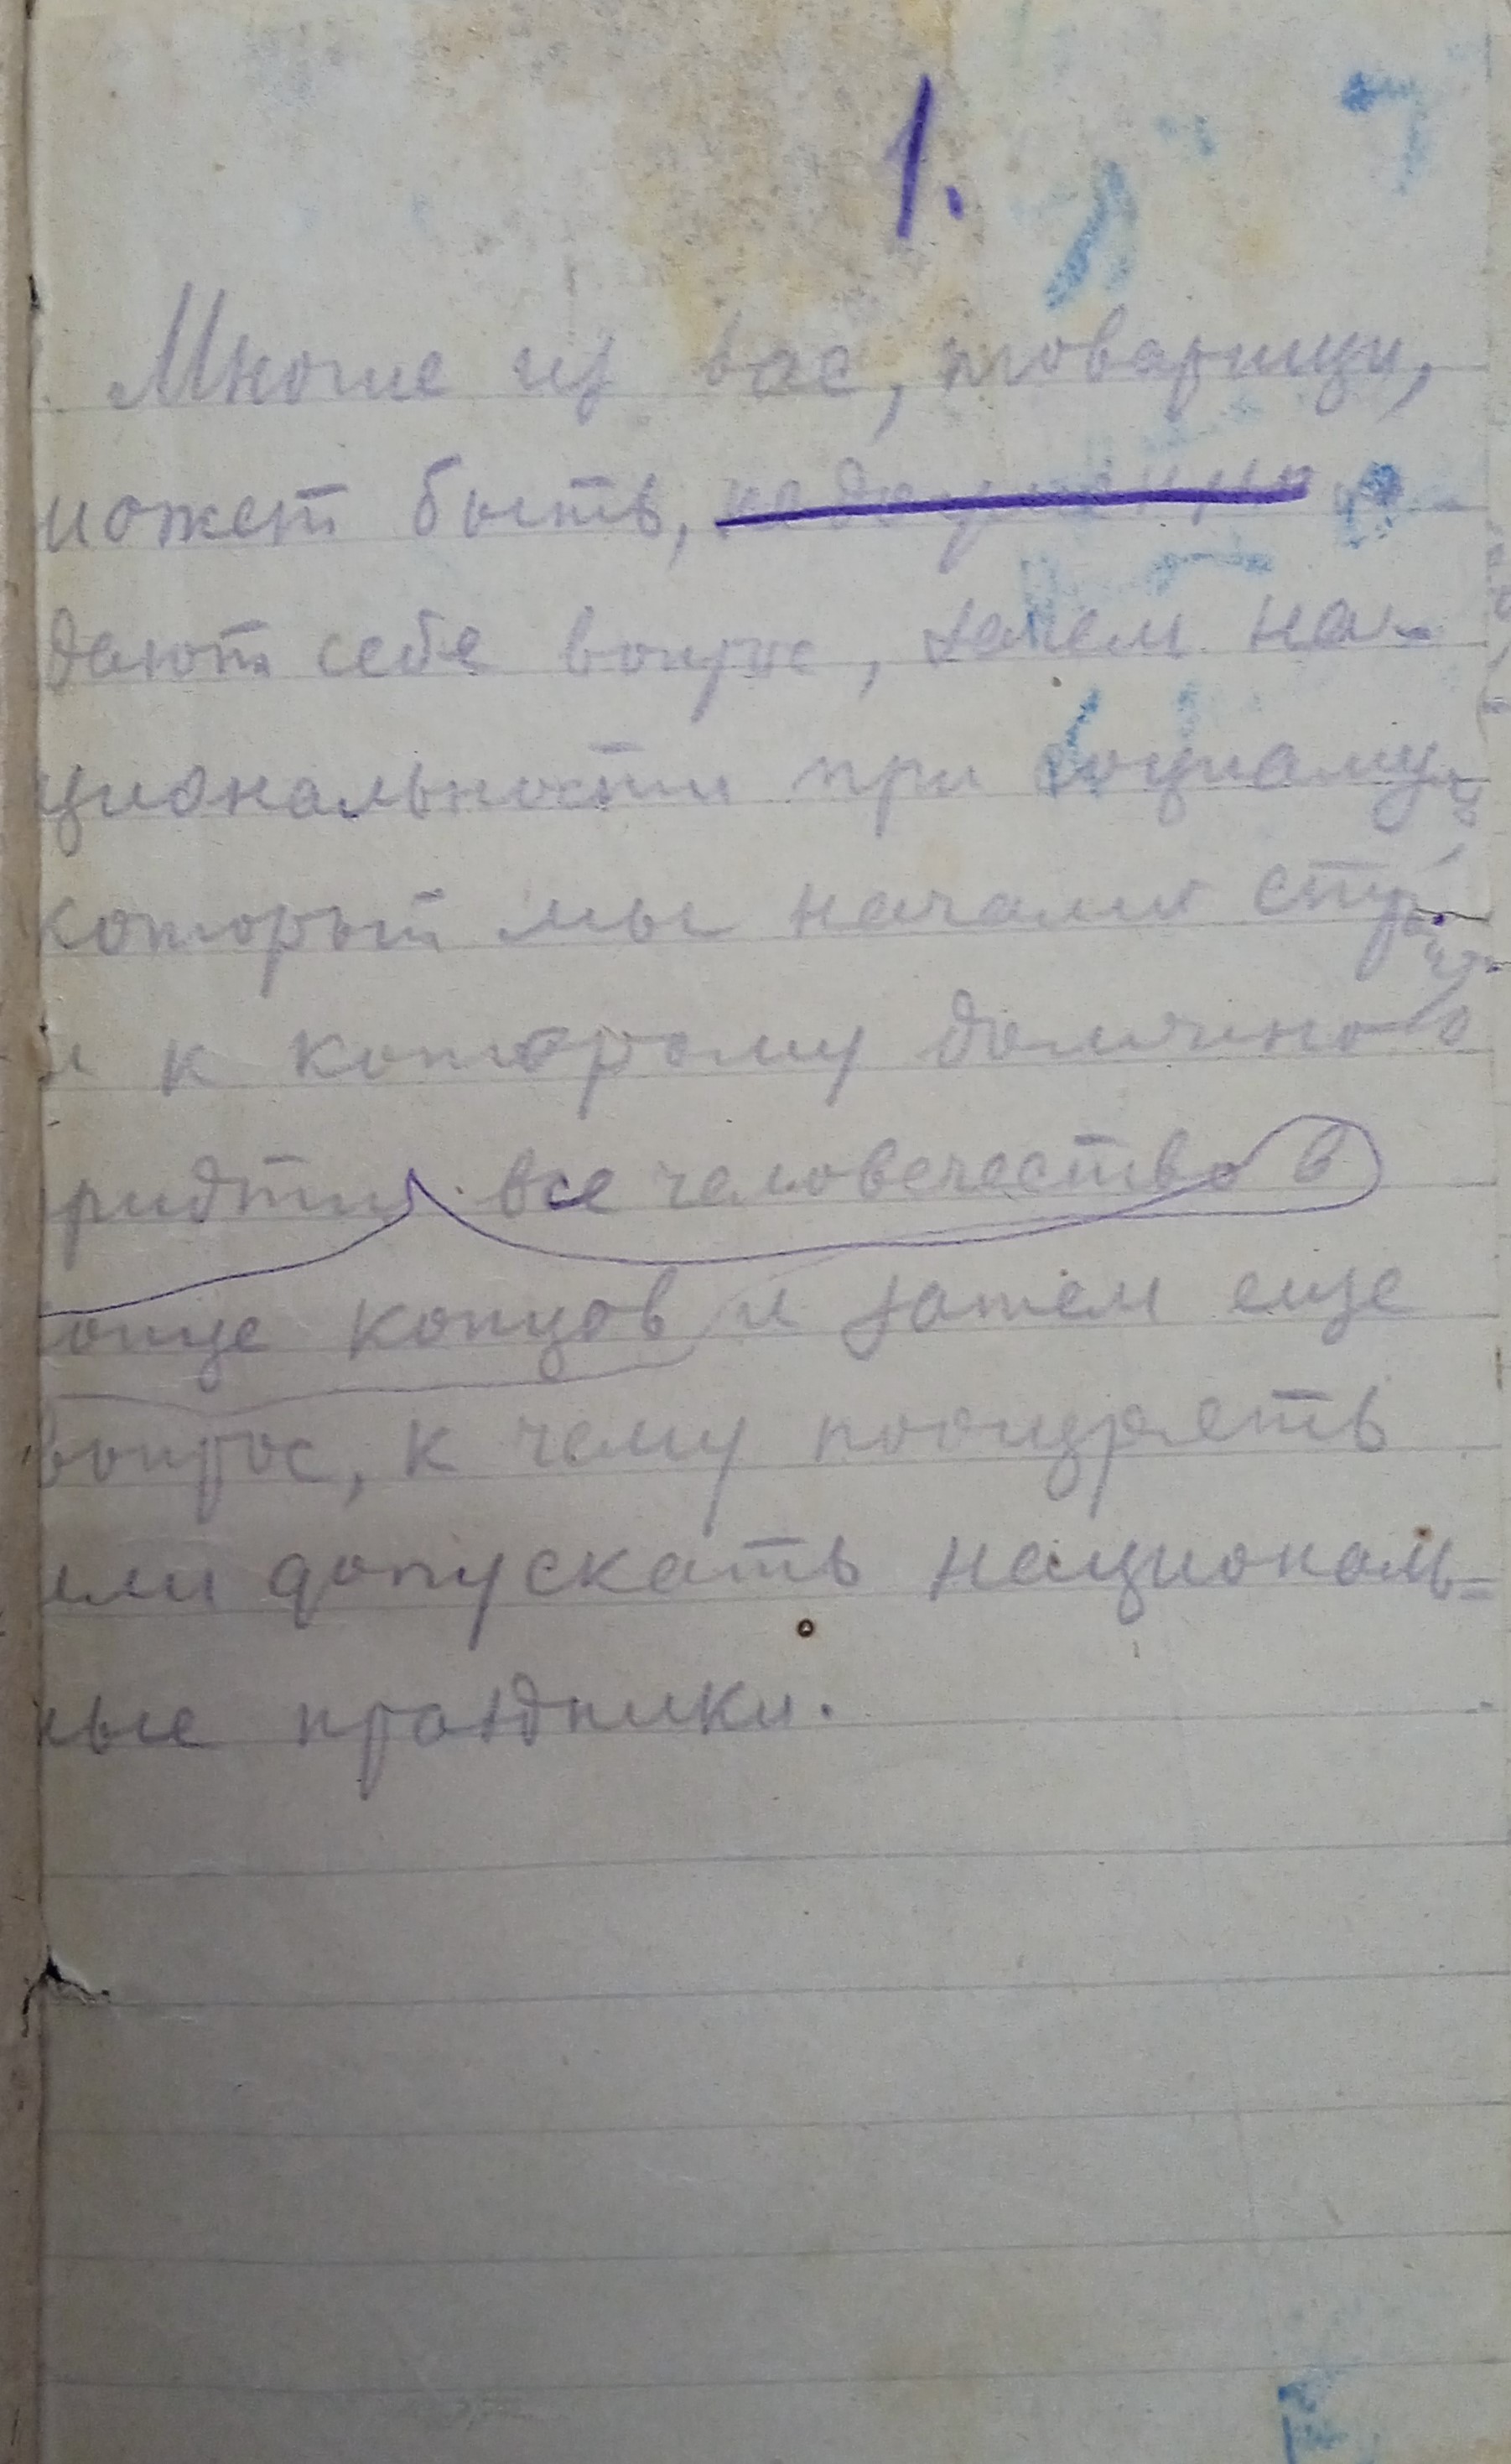 1.
Многие из вас, товарищи,
может быть,
дают себе вопрос, зачем на-
циональности при социализ
который мы начали стр
и к которому должно
ридти все человечество в
онце концов и затем еще
вопрос, к чему поощрять
или допускать националь=
ные праздники.